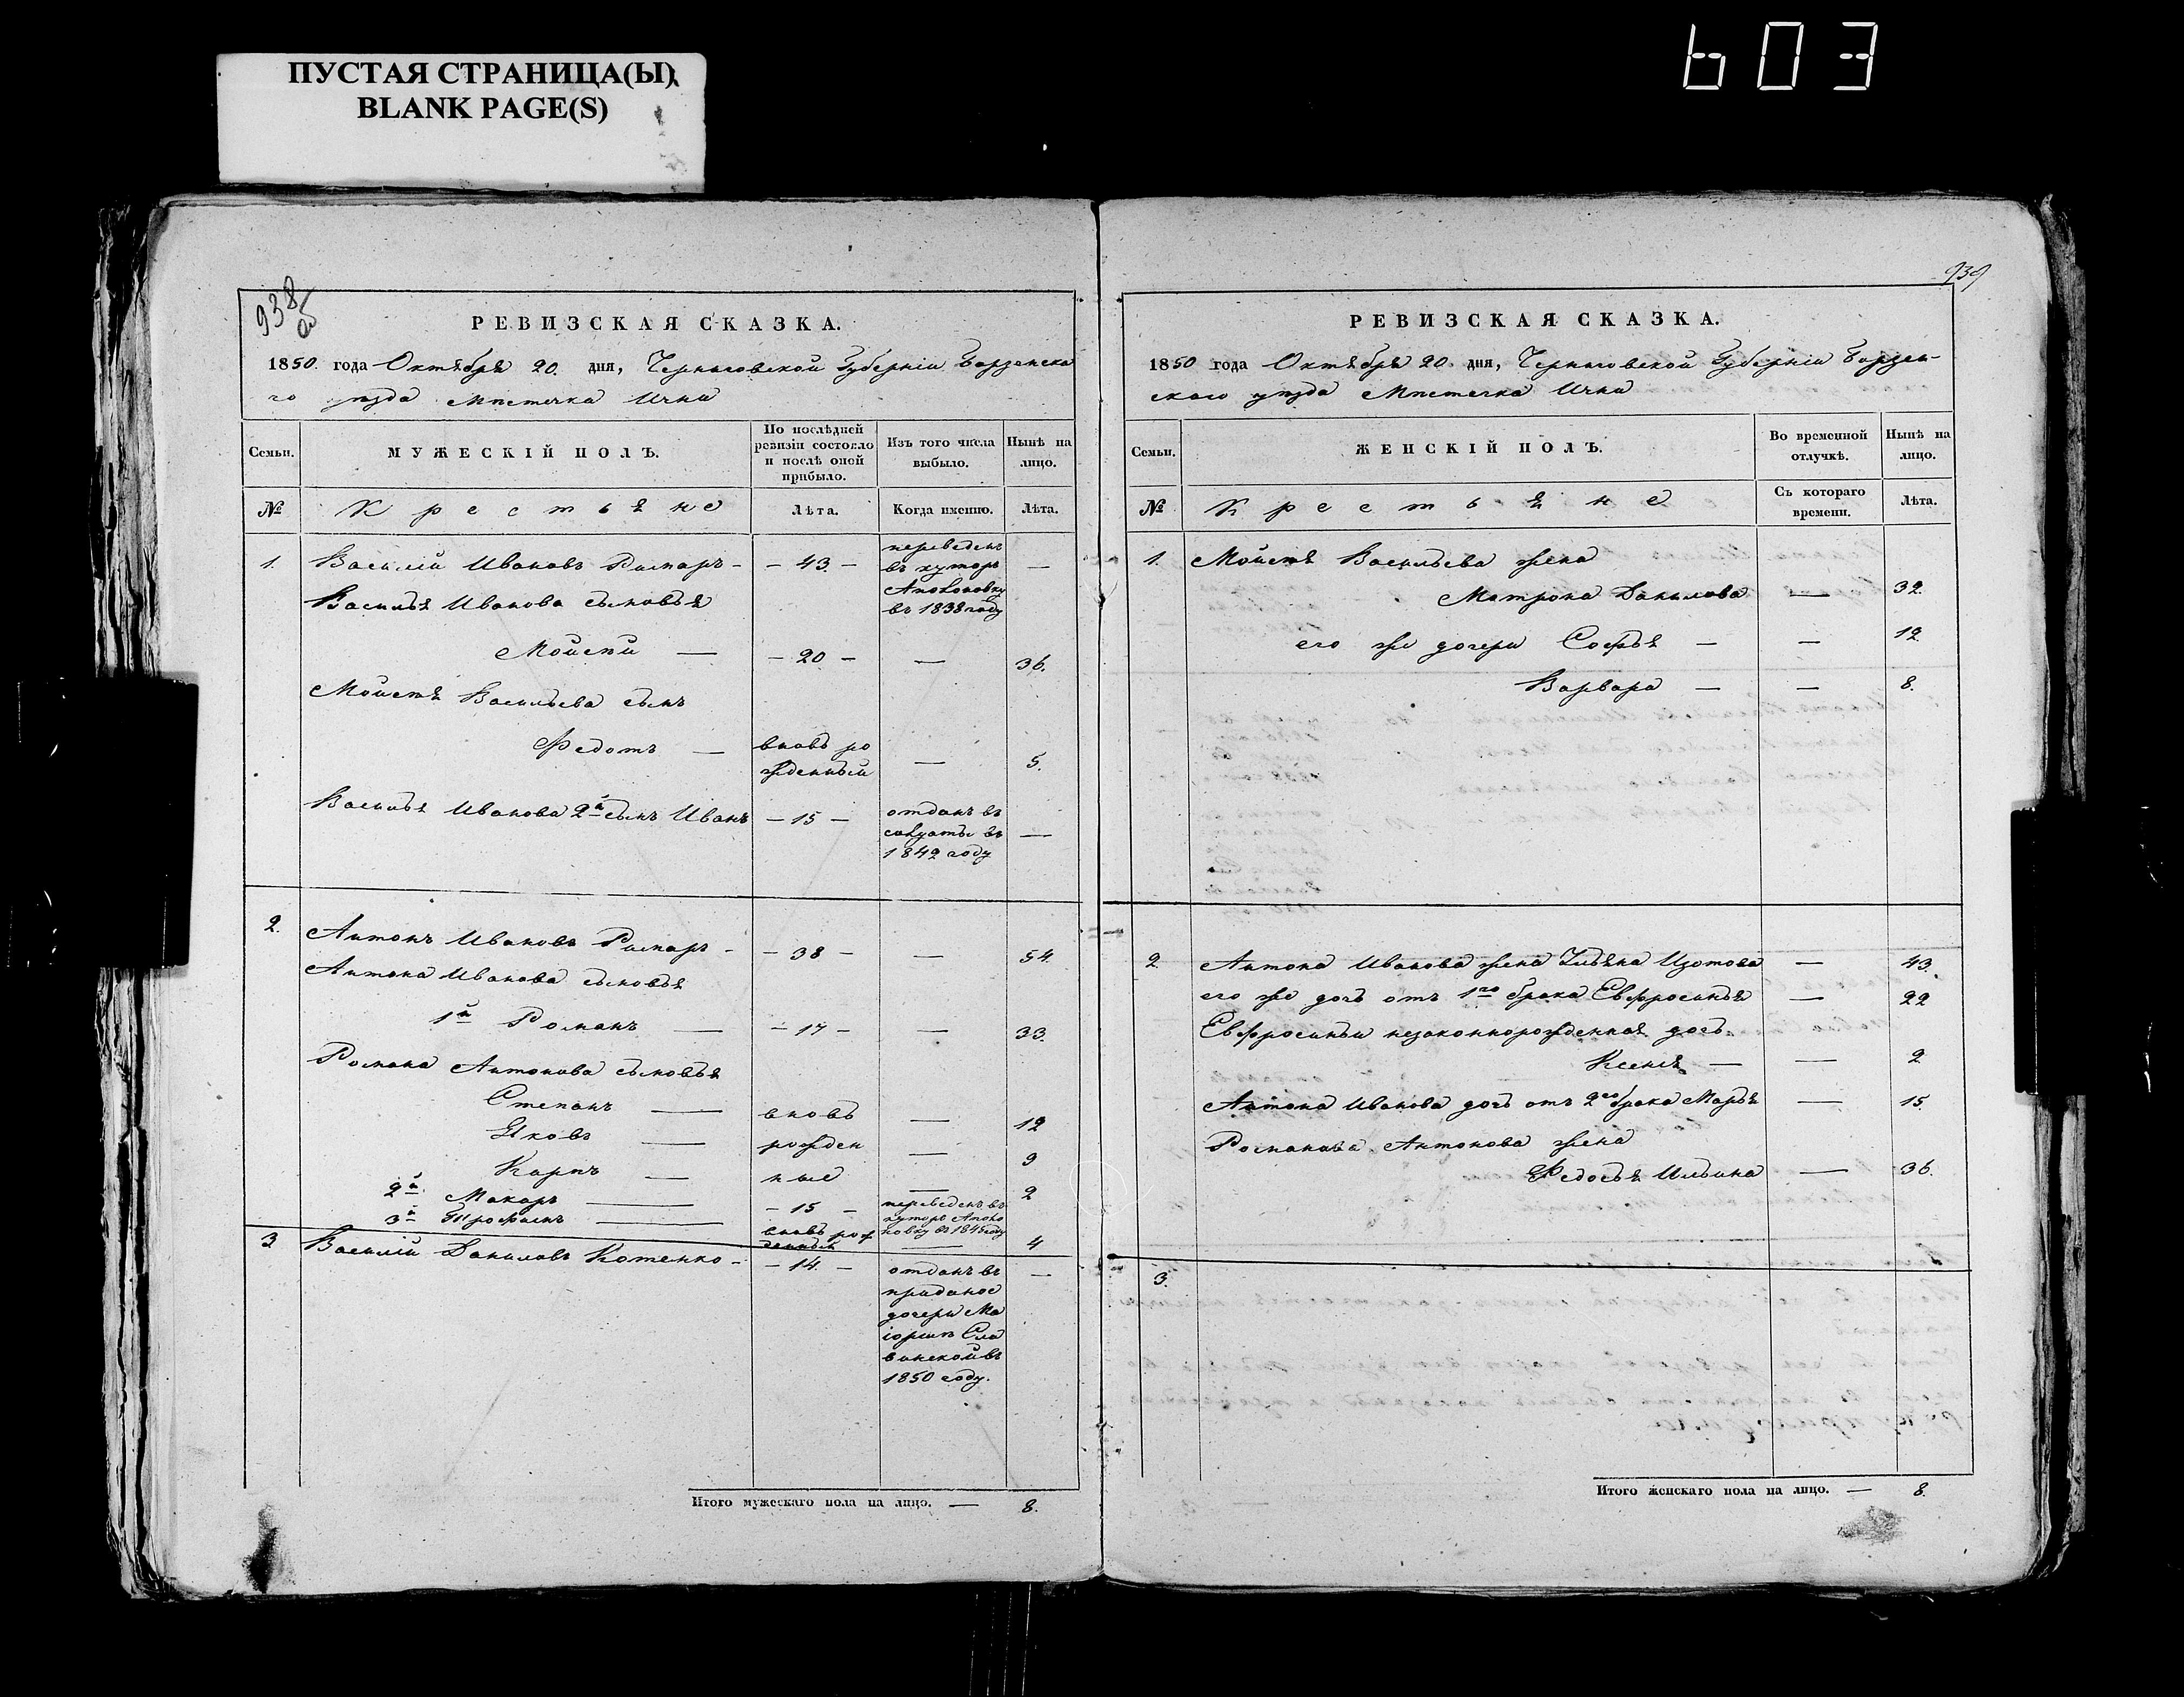 ПУСТАЯ СТРАНИЦА(Ы)
BLANK PAGE(S)
603
938
об
РЕВИЗСКАЯ СКАЗКА.
1850. года Октября 20. дня, Черниговской Губерніи Борзенска
го уѣзда Мѣстечка Ични
Семьи.
МУЖЕСКІЙ ПОЛЪ.
По послѣдней ревизіи состояло и послѣ оной прибыло.
Изъ того числа выбыло.
Нынѣ на лицо.
№
Крестьяне
Лѣта.
Когда именно.
Лѣта.
1. Василій Ивановъ Рымаръ - - 43. - переведенъ въ хуторъ въ 1838 году —
Василья Иванова сыновья
Мойсей — - 20 - — 36.
Мойсея Васильева сынъ
Федотъ — вновь рожденный — 5.
Василья Иванова 2й сынъ Иванъ - 15 - отданъ въ въ 1842 году —
2. Антонъ Ивановъ Рымаръ - - 38 - — 54.
Антона Иванова сыновья
1й Романъ — - 17 - — 33.
Романа Антонова сыновья
Степанъ — вновь — 12
Яковъ — рожден — 9
Карпъ — ные — 2
2й Макаръ — - 15 - переведенъ въ хуторъ въ 1845 году
3й Трофимъ — вновь рожденный — 4
3 Василій Даниловъ Котенко - - 14. - отданъ въ —
приданое
дочери Ма
іоршѣ Сла
винской въ
1850 году.
Итого мужескаго пола на лицо. — 8.
939
РЕВИЗСКАЯ СКАЗКА.
1850 года Октября 20. дня, Черниговской Губерніи Борзен-
скаго уѣзда Мѣстечка Ични
Семьи.
ЖЕНСКІЙ ПОЛЪ.
Во временной отлучкѣ.
Нынѣ на лицо.
№
Крестьяне
Съ котораго времени.
Лѣта.
1. Мойсея Васильева жена
Матрона Данилова — 32.
его же дочери Софья — — 12
Варвара — — 8.
2 Антона Иванова жена Ульяна Изотова — 43.
его же дочь отъ 1го брака Евфросинья — 22
Евфросиньи незаконнорожденная дочь
Ксенія — — 2
Антона Иванова дочь отъ 2го брака Марья — 15.
Романова Антонова жена
Федосья Ильина — 36.
3.
Итого женскаго пола на лицо. — 8.